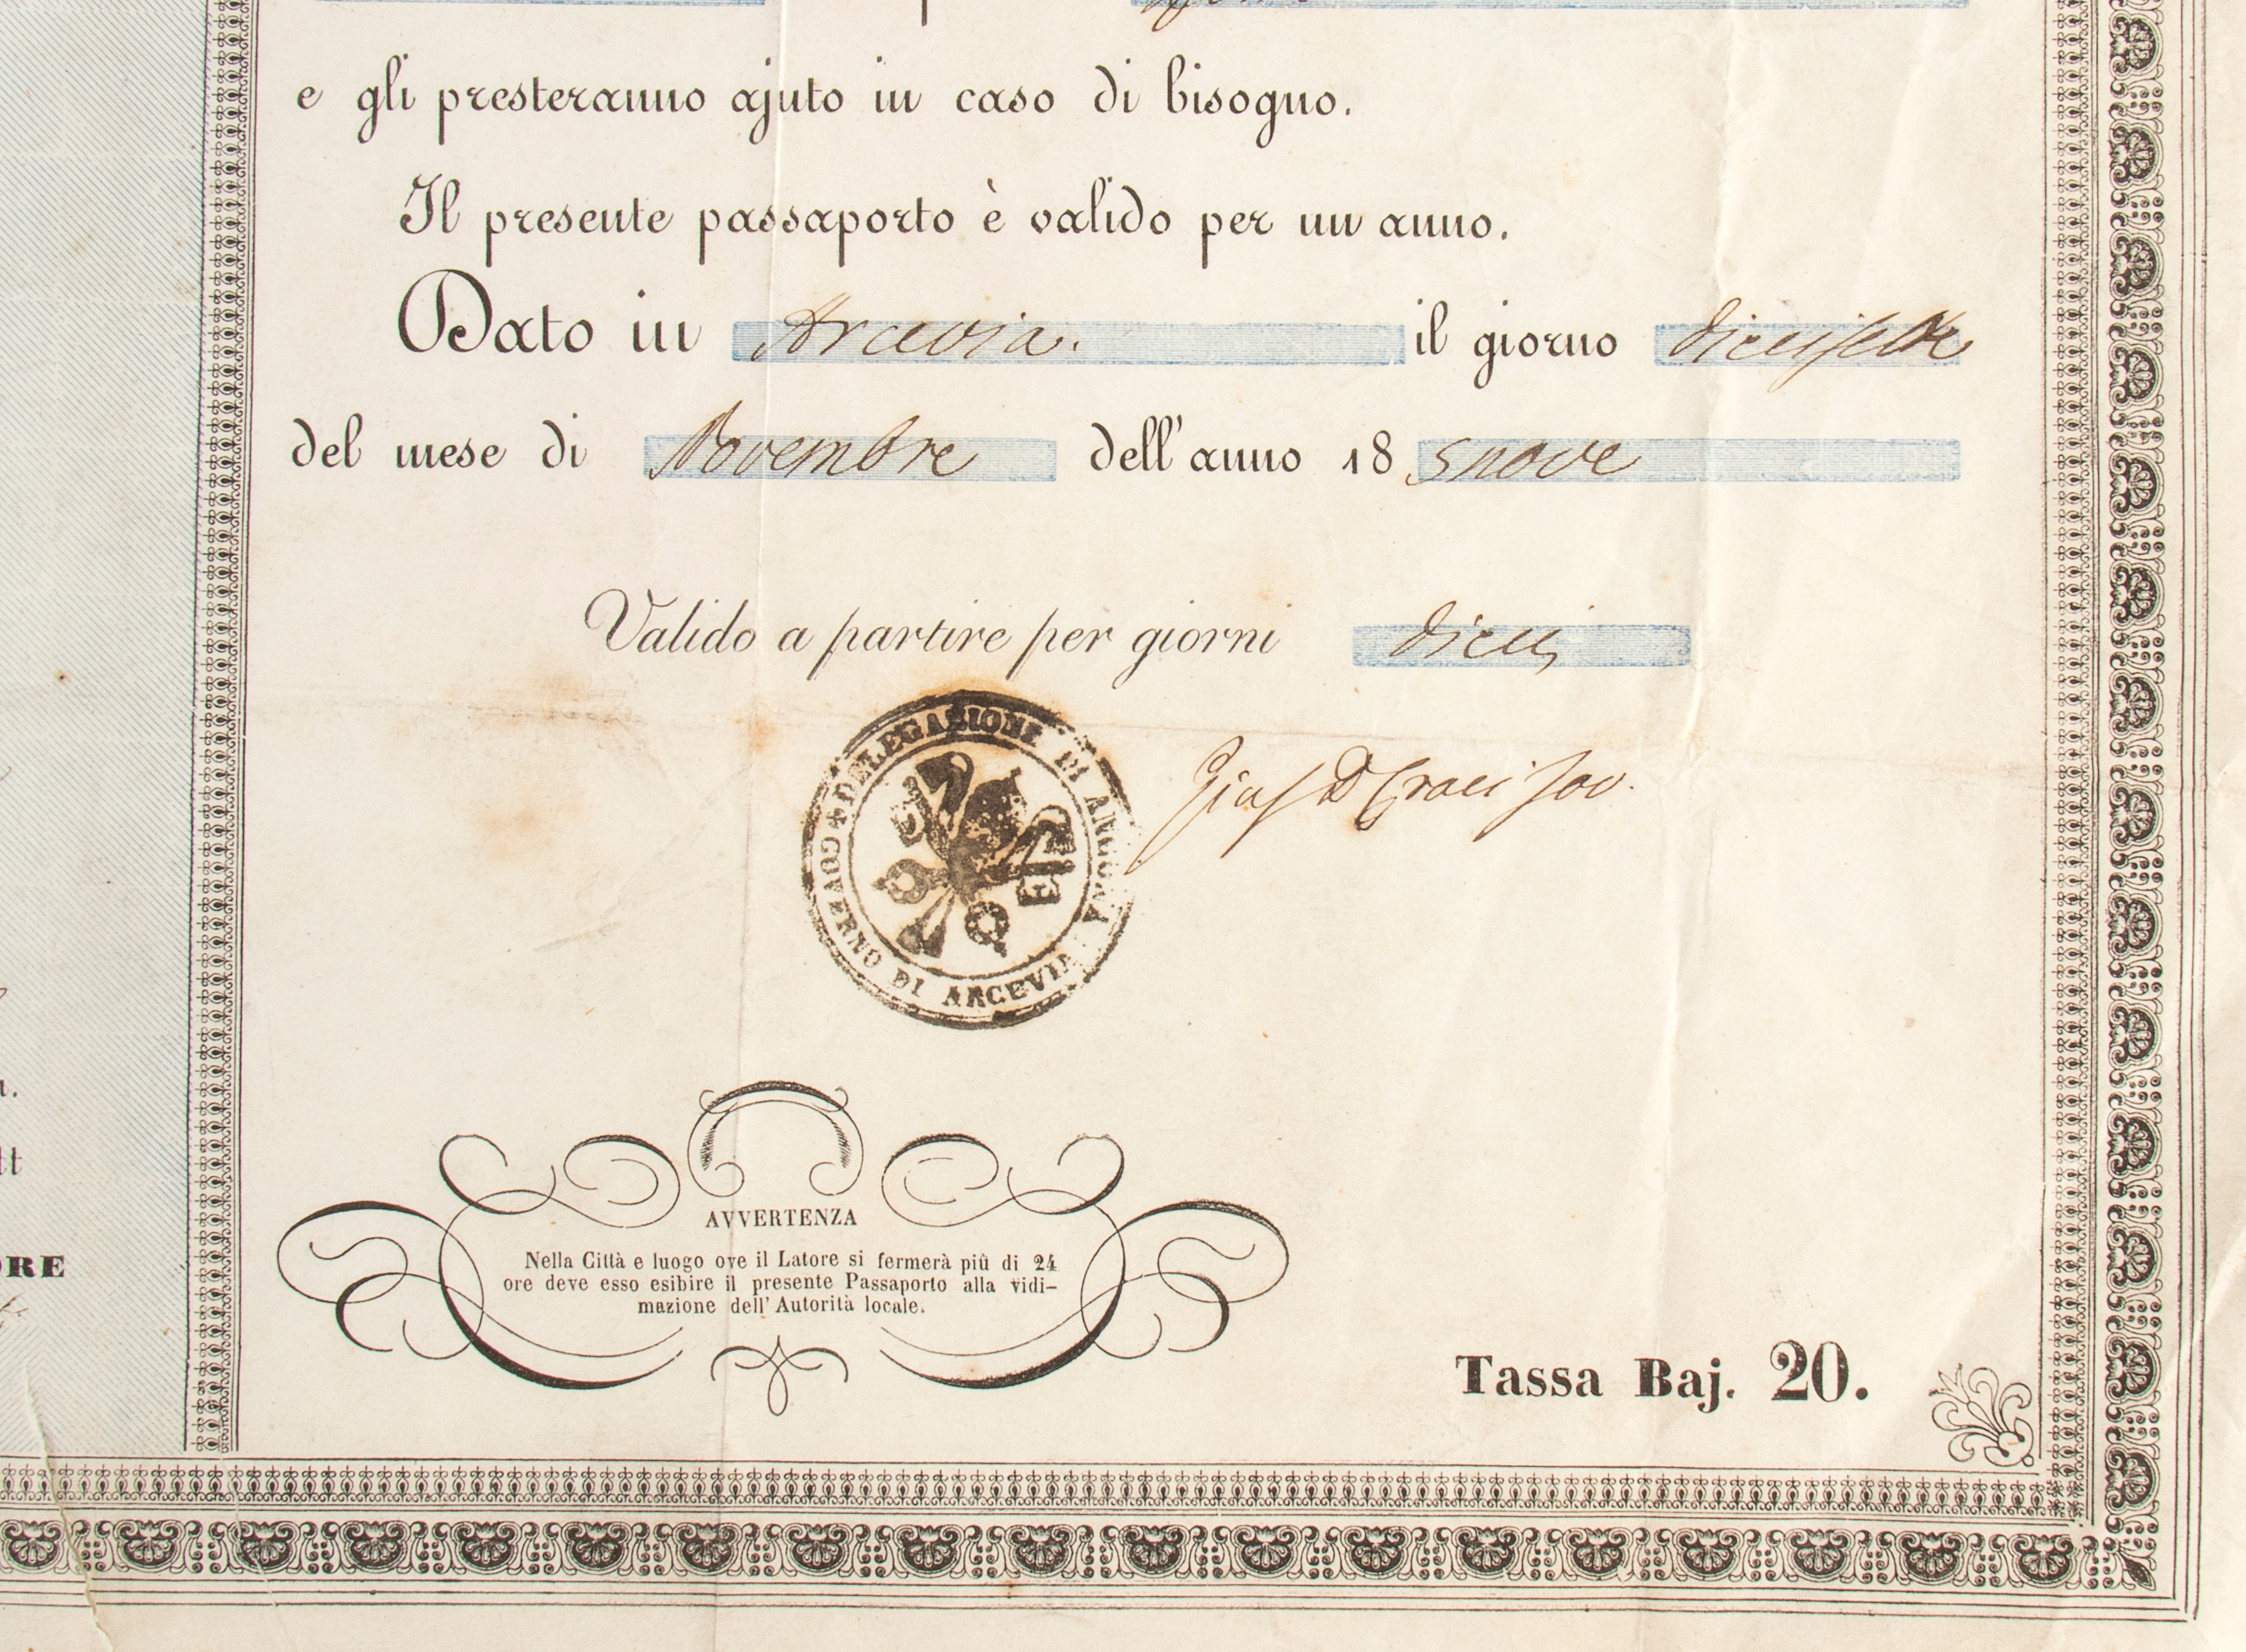 e gli presteranno ajuto in caso di bisogno.
Il presente passaporto è valido per un anno.
Dato in Arcevia. il giorno diecisette
del mese di Novembre dell'anno 18 5nove
Valido a partire per giorni dieci
DELEGAZIONE DI ANCONA
GOVERNO DI ARCEVIA
AVVERTENZA
Nella Città e luogo ove il Latore si fermerà più di 24
ore deve esso esibire il presente Passaporto alla vidi-
mazione dell' Autorità locale.
Tassa Baj. 20.
ORE